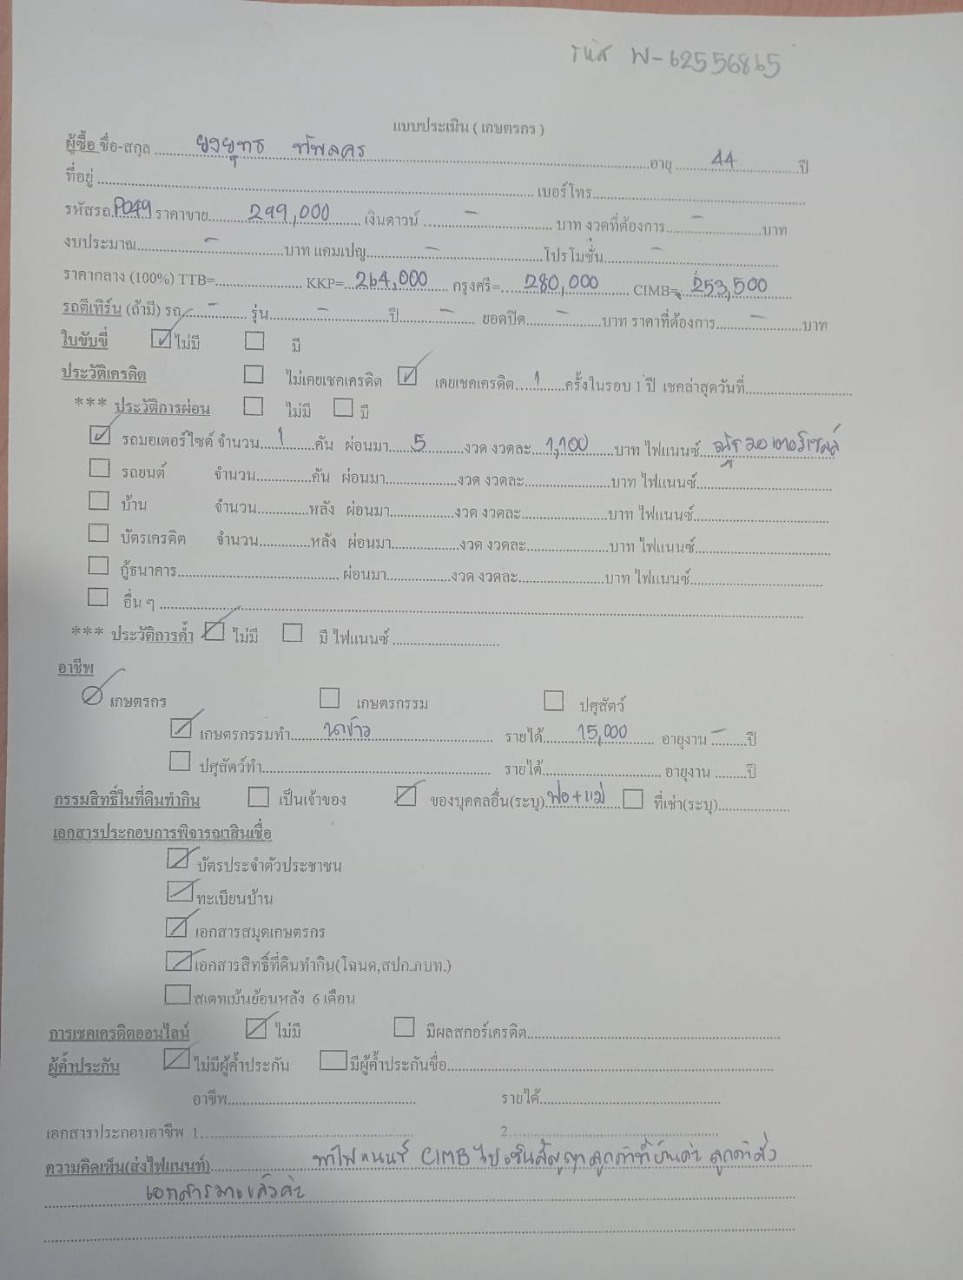 รหัส W-62556865
แบบประเมิน ( เกษตรกร )
ผู้ซื้อ ชื่อ-สกุล ยงยุทธ ทัพละคร อายุ 44 ปี
ที่อยู่ เบอร์โทร
รหัสรถ P049 ราคาขาย 299,000 เงินดาวน์ - บาท งวดที่ต้องการ - บาท
งบประมาณ - บาท แคมเปญ - โปรโมชั่น -
ราคากลาง (100%) TTB= KKP= 264,000 กรุงศรี= 280,000 CIMB= 253,500
รถตีเทิร์น (ถ้ามี) รถ - รุ่น - ปี - ยอดปิด - บาท ราคาที่ต้องการ - บาท
ใบขับขี่ ไม่มี มี
ประวัติเครดิต ไม่เคยเชคเครดิต เคยเชคเครดิต 1 ครั้งในรอบ 1 ปี เชคล่าสุดวันที่
*** ประวัติการผ่อน ไม่มี มี
รถมอเตอร์ไซด์ จำนวน 1 คัน ผ่อนมา 5 งวด งวดละ 1,100 บาท ไฟแนนซ์ มอเตอร์เซลล์
รถยนต์ จำนวน คัน ผ่อนมา งวด งวดละ บาท ไฟแนนซ์
บ้าน จำนวน หลัง ผ่อนมา งวด งวดละ บาท ไฟแนนซ์
บัตรเครดิต จำนวน หลัง ผ่อนมา งวด งวดละ บาท ไฟแนนซ์
กู้ธนาคาร ผ่อนมา งวด งวดละ บาท ไฟแนนซ์
อื่น ๆ
*** ประวัติการค้ำ ไม่มี มี ไฟแนนซ์
อาชีพ
เกษตรกร เกษตรกรรม ปศุสัตว์
เกษตรกรรมทำ นาข้าว รายได้ 15,000 อายุงาน - ปี
ปศุสัตว์ทำ รายได้ อายุงาน ปี
กรรมสิทธิ์ในที่ดินทำกิน เป็นเจ้าของ ของบุคคลอื่น(ระบุ) พ่อ+แม่ ที่เช่า(ระบุ)
เอกสารประกอบการพิจารณาสินเชื่อ
บัตรประจำตัวประชาชน
ทะเบียนบ้าน
เอกสารสมุดเกษตรกร
เอกสารสิทธิ์ที่ดินทำกิน(โฉนด,สปก.ภบท.)
สเตทเม้นย้อนหลัง 6 เดือน
การเชคเครดิตออนไลน์ ไม่มี มีผลสกอร์เครดิต
ผู้ค้ำประกัน ไม่มีผู้ค้ำประกัน มีผู้ค้ำประกันชื่อ
อาชีพ รายได้
เอกสารประกอบอาชีพ 1. 2.
ความคิดเห็น(ส่งไฟแนนท์) พาไฟแนนซ์ CIMB ไปเซ็นสัญญาลูกค้าที่บ้านค่ะ ลูกค้าส่ง
เอกสารมาแล้วค่ะ